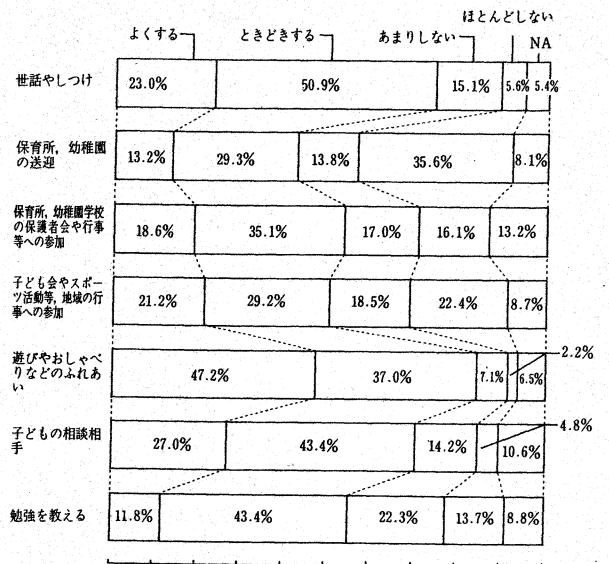 ほとんどしない
よくする ときどきする あまりしない NA
世話やしつけ 23.0% 50.9% 15.1% 5.6% 5.4%
保育所,幼稚園
の送迎
13.2% 29.3% 13.8% 35.6% 8.1%
保育所,幼稚園学校
の保護者会や行事
等への参加
18.6% 35.1% 17.0% 16.1% 13.2%
子ども会やスポー
ツ活動等,地域の行
事への参加
21.2% 29.2% 18.5% 22.4% 8.7%
遊びやおしゃべ
りなどのふれあ
い
47.2% 37.0% 7.1% 2.2% 6.5%
子どもの相談相
手
27.0% 43.4% 14.2% 4.8% 10.6%
勉強を教える 11.8% 43.4% 22.3% 13.7% 8.8%